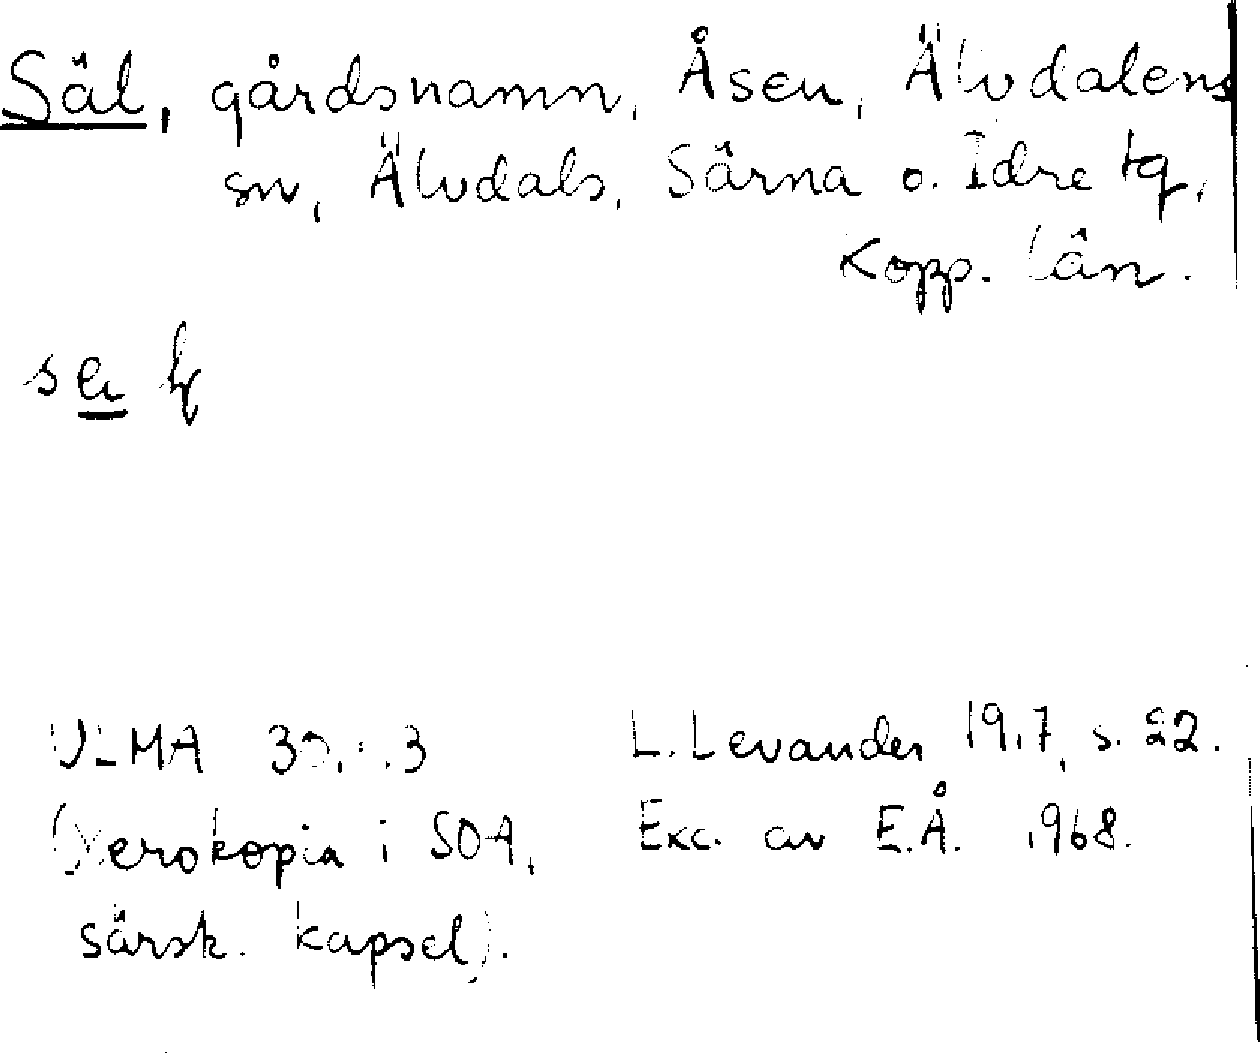 Säl, gårdsnamn, Åsen, Älvdalens
sn, Älvdals, Särna o. Idre tg,
Kopp. län.
ULMA
L. Levander s. 22.
(Xerokopia i SOA,
Exc. av E.Å. 1968.
särsk. kapsel).